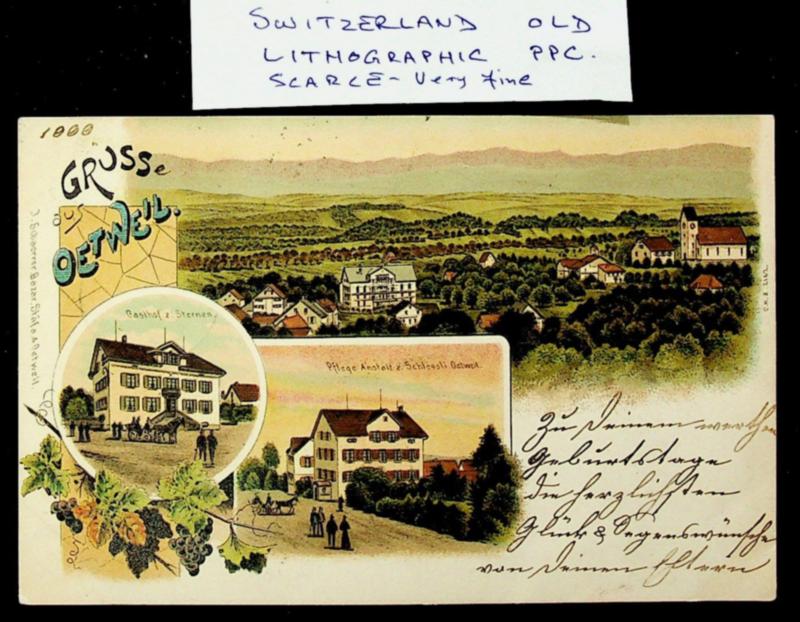 SWITZERLAND OLD
LITHOGRAPHIC PPC.
SCARCE - Very fine
1900
GRUSS
OETWEIL.
Gasthof z. Sternen.
Pflege Anstalt z. Schloessli Oetweil.
Zu Deinem werthen
Geburtstage
die herzlichsten
Glück & Segenswünsche
von Deinen Eltern